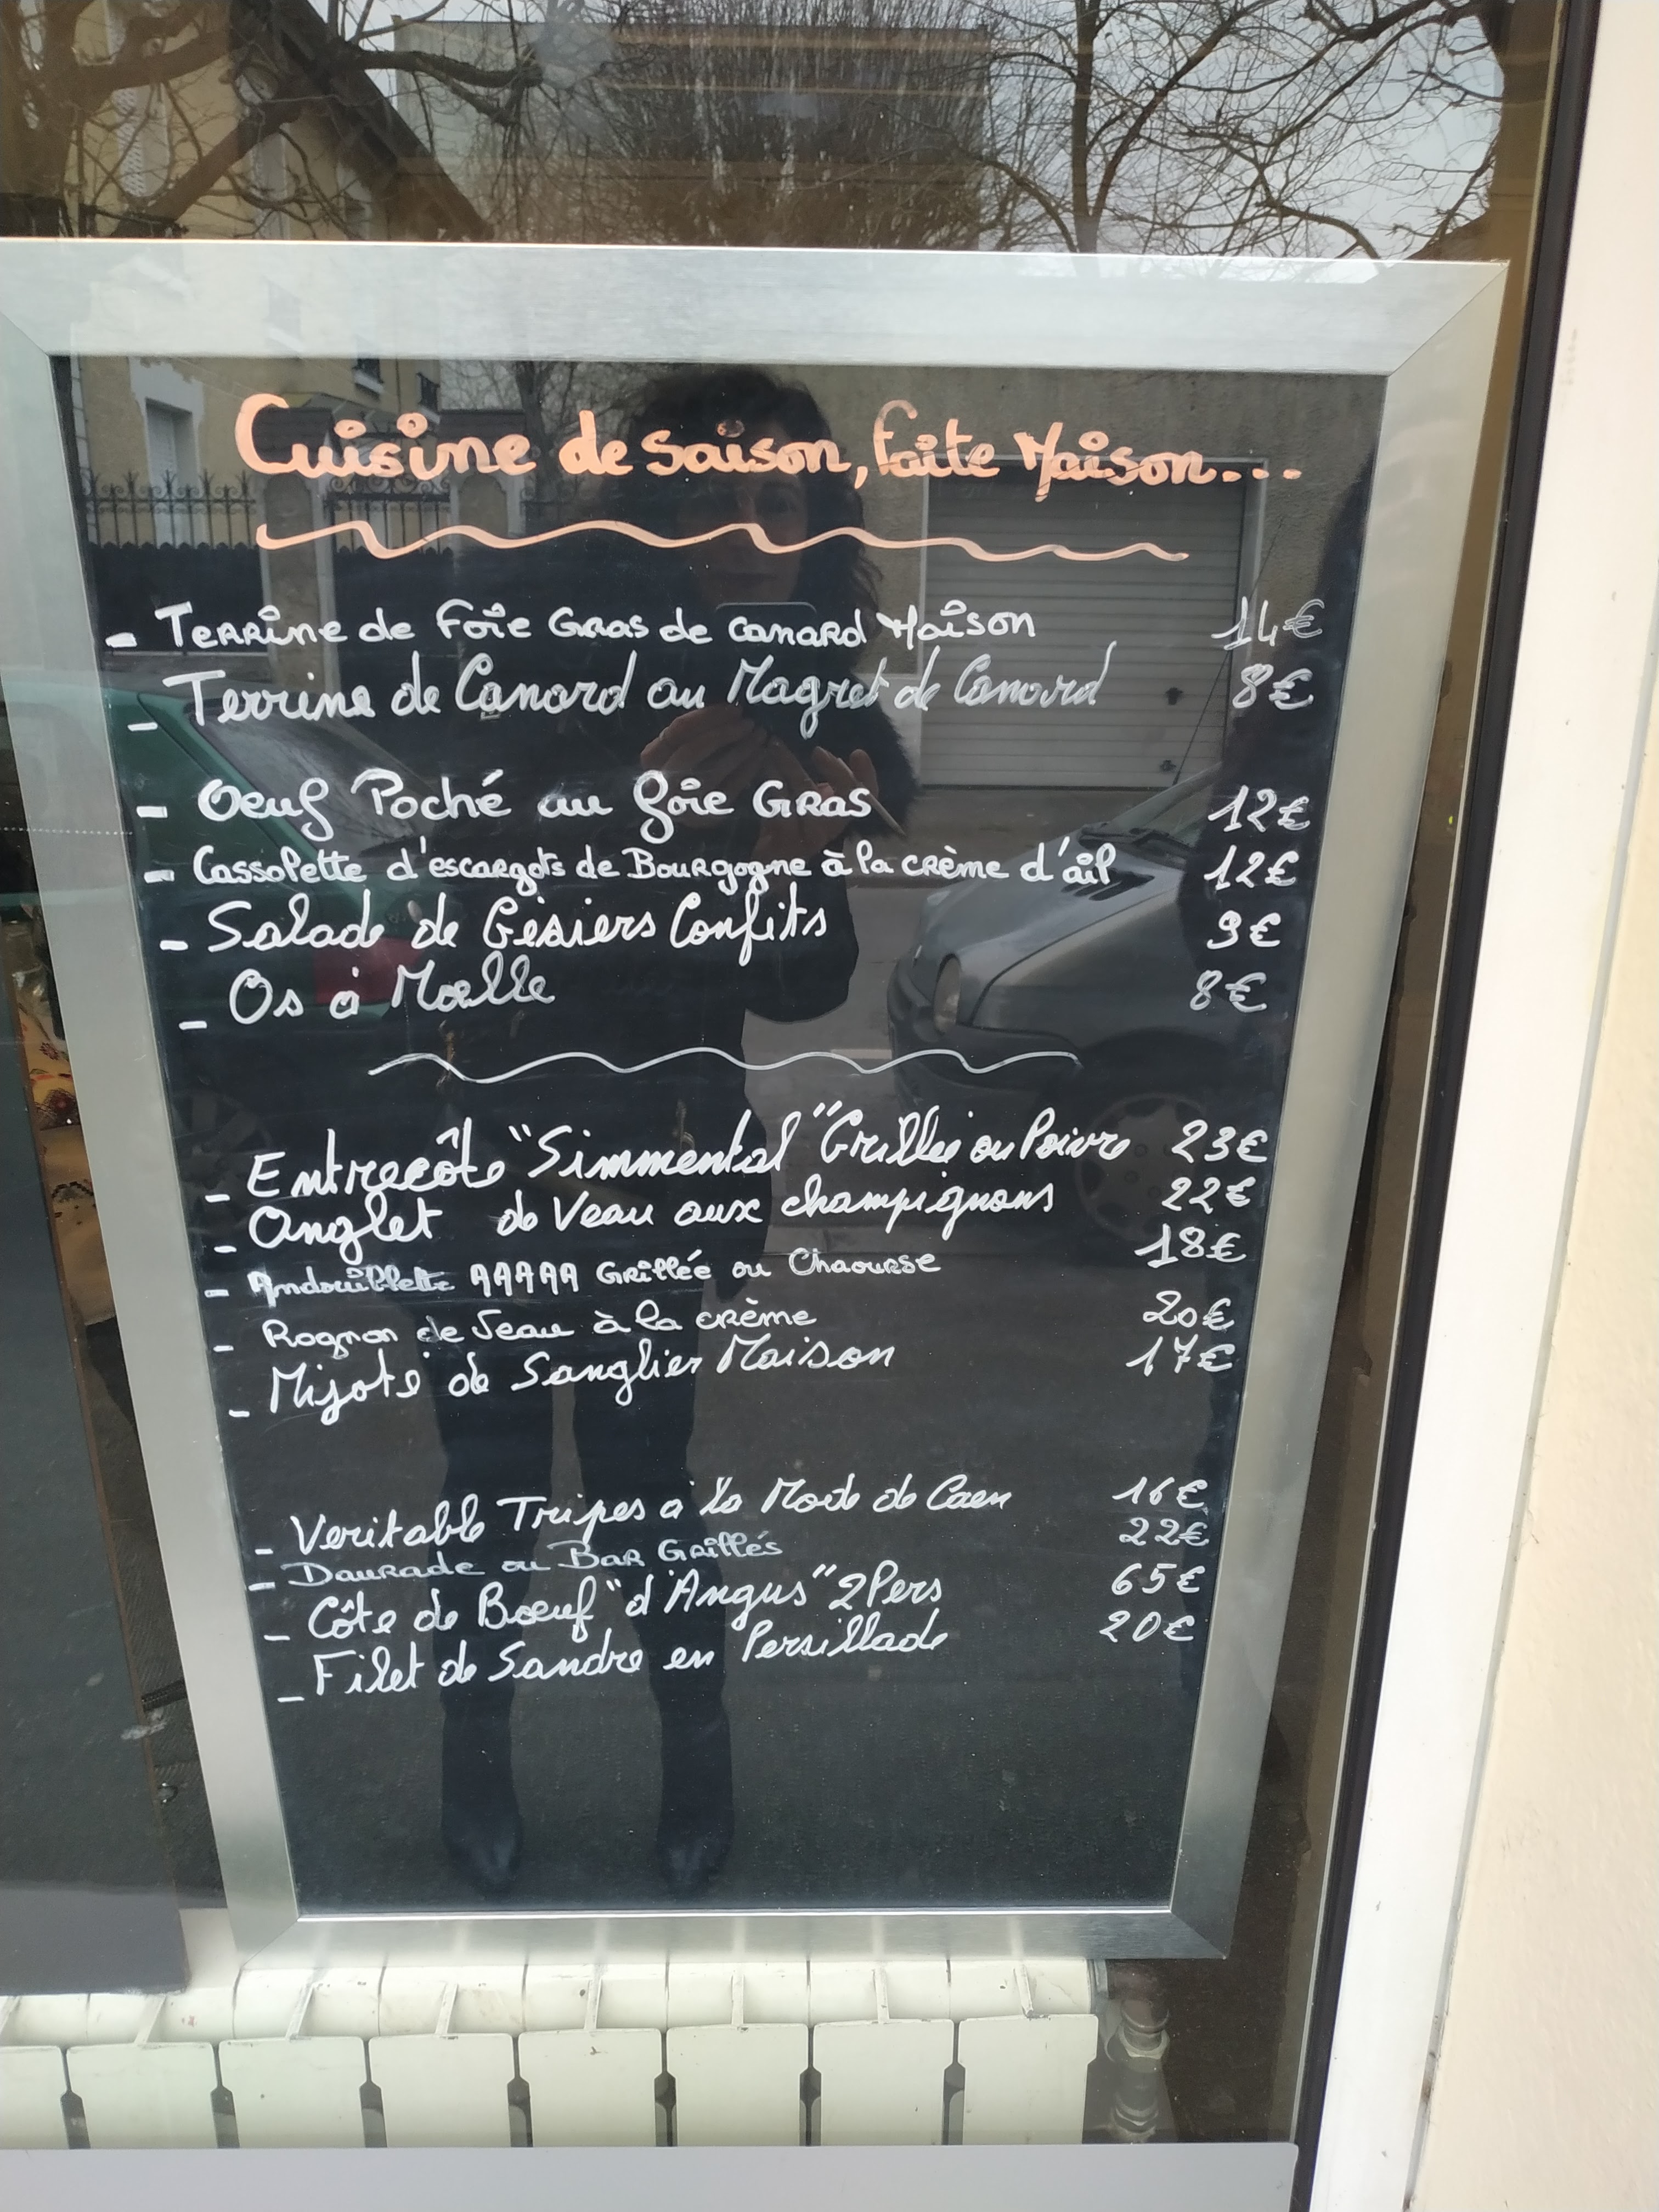 Cuisine de saison, faite Maison...
- Terrine de Foie Gras de canard Maison 14€
- Terrine de Canard au Magret de Canard 8€
- Oeuf Poché au foie Gras 12€
- Cassolette d'escargots de Bourgogne à la crème d'ail 12€
- Salade de Gésiers Confits 9€
- Os à Moelle 8€
- Entrecôte "Simmental" Grillée ou Poivre 23€
- Onglet de Veau aux champignons 22€
- Andouillette AAAAA Grillée ou Chaourse 18€
- Rognon de Veau à la crème 20€
- Mijoté de Sanglier Maison 17€
- Veritable Tripes a la Mode de Caen 16€
- Daurade ou Bar Grillés 22€
- Côte de Boeuf "d'Angus" 2Pers 65€
- Filet de Sandre en Persillade 20€